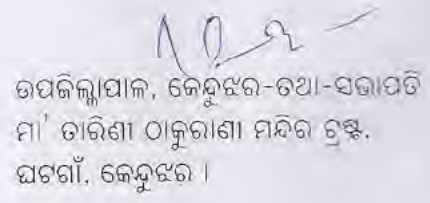 ଉପଜିଲ୍ଲାପାଳ, କେନ୍ଦୁଝର-ତଥା-ସଭାପତି
ମା' ତାରିଣୀ ଠାକୁରାଣୀ ମନ୍ଦିର ଟ୍ରଷ୍ଟ,
ଘଟଗାଁ, କେନ୍ଦୁଝର ।